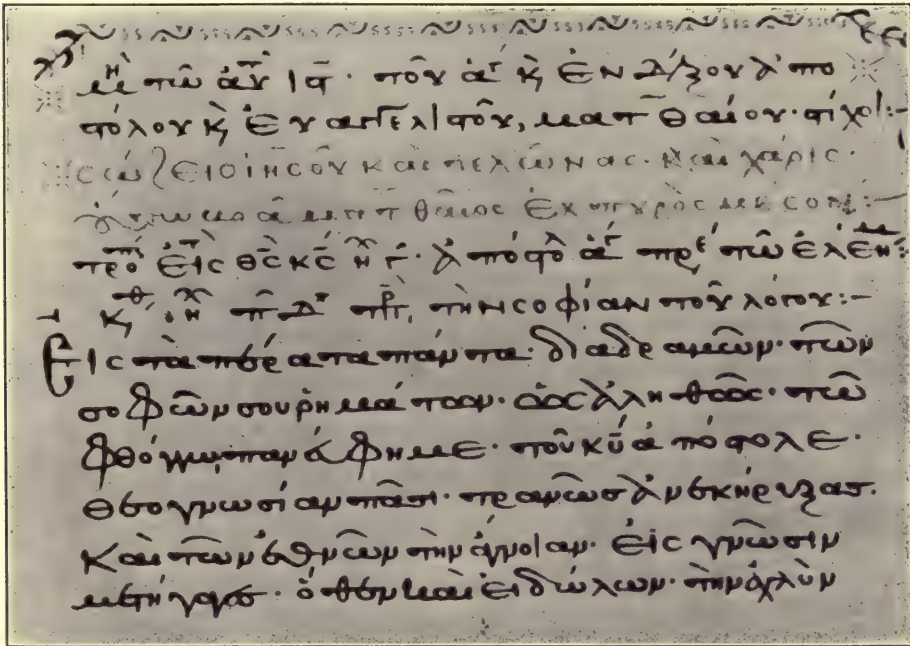 μη τῶ αὐ ις. τοῦ ἁγ κ ἐνδόξου ἀπο
στόλου κ εὐαγγελιστοῦ, ματθαίου· στίχοι:–
σώζει ἰησοῦ καὶ τελώνας. καὶ χάρις.
ματθαῖος ἐκ πυρὸς σοι:–
εἰς θς κς ἠχ γ· ἀπόστολ ἁγ πρε τῶ ἐλεήμ:
κ ἠχ πλ δ πρ, τὴν σοφίαν τοῦ λόγου:–
Εἰς τὰ πέρατα πάντα· διαδραμὼν· τῶν
σοφῶν σου ῥημάτων· ὡς ἀληθῶς· τῶ
φθόγγω, πανεύφημε· τοῦ κυ ἀπόστολε·
θεογνωσίαν πᾶσι· τρανῶς ἀνεκήρυξας.
Καὶ τῶν ἐθνῶν τὴν ἄγνοιαν· εἰς γνῶσιν
μετήγαγες· ὅθεν καὶ εἰδώλων· τὴν ἀχλὺν